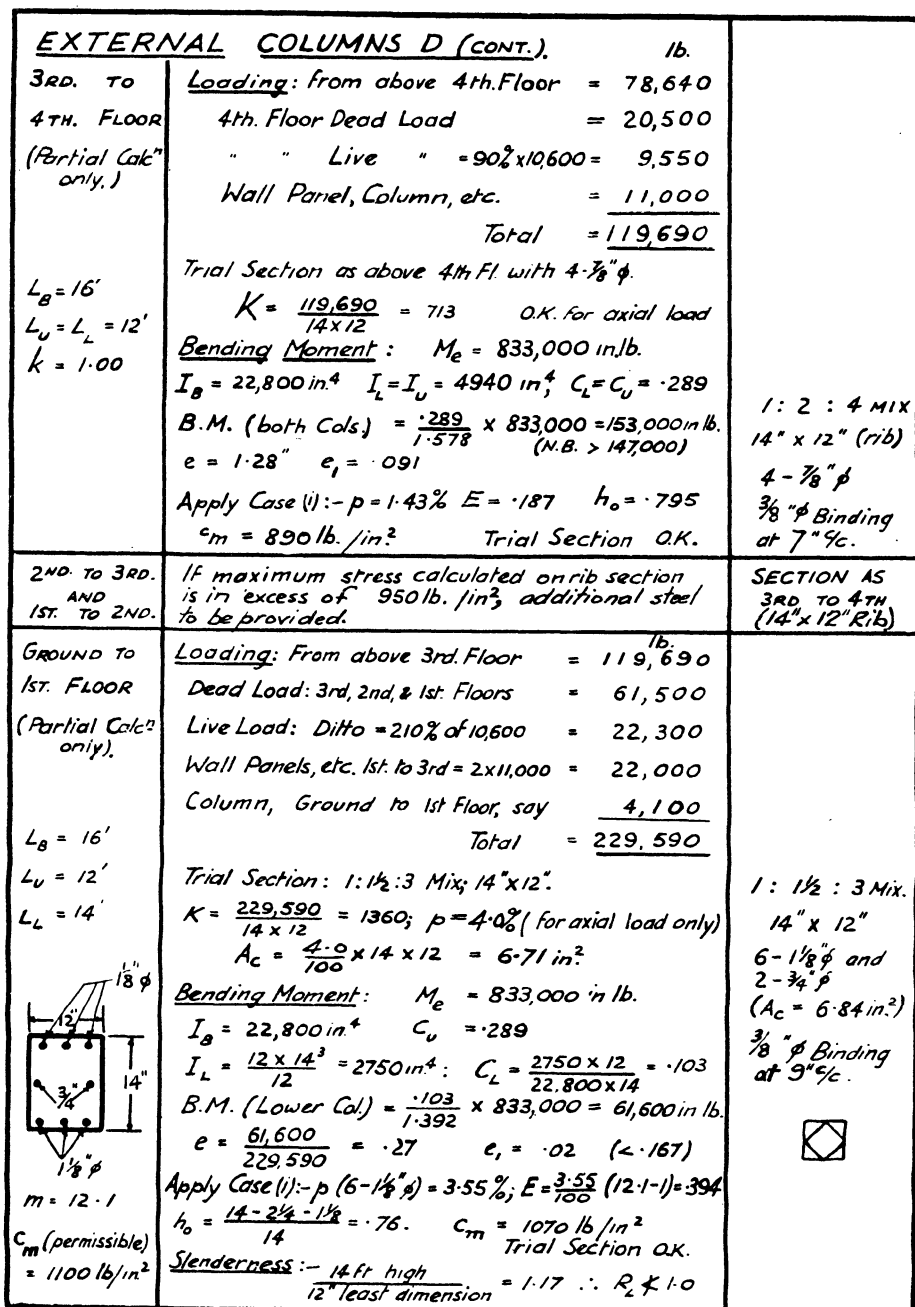 EXTERNAL COLUMNS D (CONT.). lb.
3RD. TO
4TH. FLOOR
(Partial Calcⁿ
only.)
L_B = 16'
L_U = L_L = 12'
k = 1·00
Loading: From above 4th. Floor = 78,640
4th. Floor Dead Load = 20,500
" " Live " = 90% x 10,600 = 9,550
Wall Panel, Column, etc. = 11,000
Total = 119,690
Trial Section as above 4th Fl. with 4-7/8"ϕ.
K = 119,690 / 14 x 12 = 713 O.K. for axial load
Bending Moment: M_e = 833,000 in.lb.
I_B = 22,800 in.⁴ I_L = I_U = 4940 in⁴; C_L = C_U = ·289
B.M. (both Cols.) = ·289 / 1·578 x 833,000 = 153,000 in lb.
(N.B. > 147,000)
e = 1·28" e₁ = ·091
Apply Case (i):- p = 1·43% E = ·187 h₀ = ·795
c_m = 890 lb./in.² Trial Section O.K.
1 : 2 : 4 MIX
14" x 12" (rib)
4 - 7/8"ϕ
3/8"ϕ Binding
at 7" c/c.
2ND. TO 3RD.
AND
1ST. TO 2ND.
If maximum stress calculated on rib section
is in excess of 950 lb. /in², additional steel
to be provided.
SECTION AS
3RD. TO 4TH
(14"x 12" Rib)
GROUND TO
1ST. FLOOR
(Partial Calcⁿ
only).
L_B = 16'
L_U = 12'
L_L = 14'
1⅛"ϕ
12"
14"
3/4"
1⅛"ϕ
m = 12·1
C_m (permissible)
= 1100 lb/in²
lb.
Loading: From above 3rd. Floor = 119,690
Dead Load: 3rd, 2nd, & 1st. Floors = 61,500
Live Load: Ditto = 210% of 10,600 = 22,300
Wall Panels, etc. 1st. to 3rd = 2x11,000 = 22,000
Column, Ground to 1st Floor, say 4,100
Total = 229,590
Trial Section: 1:1½:3 Mix; 14"x12".
K = 229,590 / 14 x 12 = 1360; p = 4·0% (for axial load only)
A_c = 4·0 / 100 x 14 x 12 = 6·71 in.²
Bending Moment: M_e = 833,000 in lb.
I_B = 22,800 in.⁴ C_U = ·289
I_L = 12 x 14³ / 12 = 2750 in⁴: C_L = 2750 x 12 / 22,800 x 14 = ·103
B.M. (Lower Col.) = ·103 / 1·392 x 833,000 = 61,600 in lb.
e = 61,600 / 229,590 = ·27 e₁ = ·02 (<·167)
Apply Case (i):- p (6-1⅛"ϕ) = 3·55%; E = 3·55 / 100 (12·1-1) = 394
h₀ = 14 - 2¼ - 1⅛ / 14 = ·76. C_m = 1070 lb/in²
Trial Section O.K.
Slenderness:- 14 ft high / 12" least dimension = 1·17 ∴ R_L ≮ 1·0
1 : 1½ : 3 Mix.
14" x 12"
6 - 1⅛"ϕ and
2 - ¾"ϕ
(A_c = 6·84 in.²)
3/8"ϕ Binding
at 9" c/c.